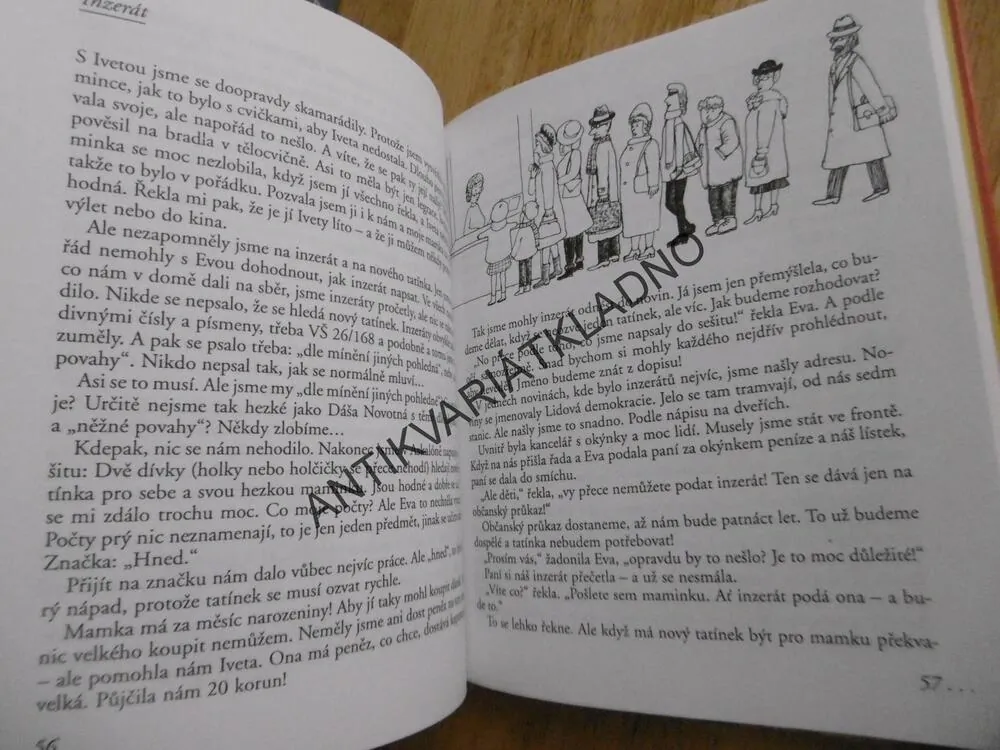 Inzerát
S Ivetou jsme se doopravdy skamarádily. Protože jsem
mince, jak to bylo s cvičkami, aby Iveta nedostala. Dlouho
vala svoje, ale napořád to nešlo. A víte, že se pak ty její
pověsil na bradla v tělocvičně. Asi to měla být jen legrace.
minka se moc nezlobila, když jsem jí všechno řekla, a Iveta
takže to bylo v pořádku. Pozvala jsem ji i k nám a moje mamka
hodná. Řekla mi pak, že je jí Ivety líto – a že ji můžem někdy
výlet nebo do kina.
Ale nezapomněly jsme na inzerát a na nového tatínka. Jen
řád nemohly s Evou dohodnout, jak inzerát napsat. Ve všech
co nám v domě dali na sběr, jsme inzeráty pročetly, ale nic se
dilo. Nikde se nepsalo, že se hledá nový tatínek. Inzeráty
divnými čísly a písmeny, třeba VŠ 26/168 a podobně a tomu
zuměly. A pak se psalo třeba: „dle mínění jiných pohlední“,
povahy“. Nikdo nepsal tak, jak se normálně mluví...
Asi se to musí. Ale jsme my „dle mínění jiných pohledné“
je? Určitě nejsme tak hezké jako Dáša Novotná s těmi
a „něžné povahy“? Někdy zlobíme...
Kdepak, nic se nám nehodilo. Nakonec jsme
šitu: Dvě dívky (holky nebo holčičky se přece nehodí) hledají
tínka pro sebe a svou hezkou maminku. Jsou hodné a dobře se
se mi zdálo trochu moc. Co moje počty? Ale Eva to nechtěla
Počty prý nic neznamenají, to je jen jeden předmět, jinak se
Značka: „Hned.“
Přijít na značku nám dalo vůbec nejvíc práce. Ale „hned“, to
rý nápad, protože tatínek se musí ozvat rychle.
Mamka má za měsíc narozeniny! Aby jí taky mohl koupit
nic velkého koupit nemůžem. Neměly jsme ani dost peněz na
– ale pomohla nám Iveta. Ona má peněz, co chce, dostává
velká. Půjčila nám 20 korun!
56
Tak jsme mohly inzerát odnést do novin. Já jsem jen přemýšlela, co bu-
deme dělat, když se neozve jeden tatínek, ale víc. Jak budeme rozhodovat?
„No přece podle toho, co jsme napsaly do sešitu!“ řekla Eva. A podle
samozřejmě. Snad bychom si mohly každého nejdřív prohlédnout,
Jméno budeme znát z dopisu!
V jedněch novinách, kde bylo inzerátů nejvíc, jsme našly adresu. No-
ny se jmenovaly Lidová demokracie. Jelo se tam tramvají, od nás sedm
stanic. Ale našly jsme to snadno. Podle nápisu na dveřích.
Uvnitř byla kancelář s okýnky a moc lidí. Musely jsme stát ve frontě.
Když na nás přišla řada a Eva podala paní za okýnkem peníze a náš lístek,
paní se dala do smíchu.
„Ale děti,“ řekla, „vy přece nemůžete podat inzerát! Ten se dává jen na
občanský průkaz!“
Občanský průkaz dostaneme, až nám bude patnáct let. To už budeme
dospělé a tatínka nebudem potřebovat!
„Prosím vás,“ žadonila Eva, „opravdu by to nešlo? Je to moc důležité!“
Paní si náš inzerát přečetla – a už se nesmála.
„Víte co?“ řekla. „Pošlete sem maminku. Ať inzerát podá ona – a bu-
de to.“
To se lehko řekne. Ale když má nový tatínek být pro mamku překva-
57...
ANTIKVARIÁTKLADNO